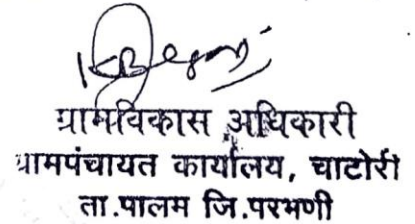 ग्रामविकास अधिकारी
ग्रामपंचायत कार्यालय, चाटोरी
ता.पालम जि.परभणी